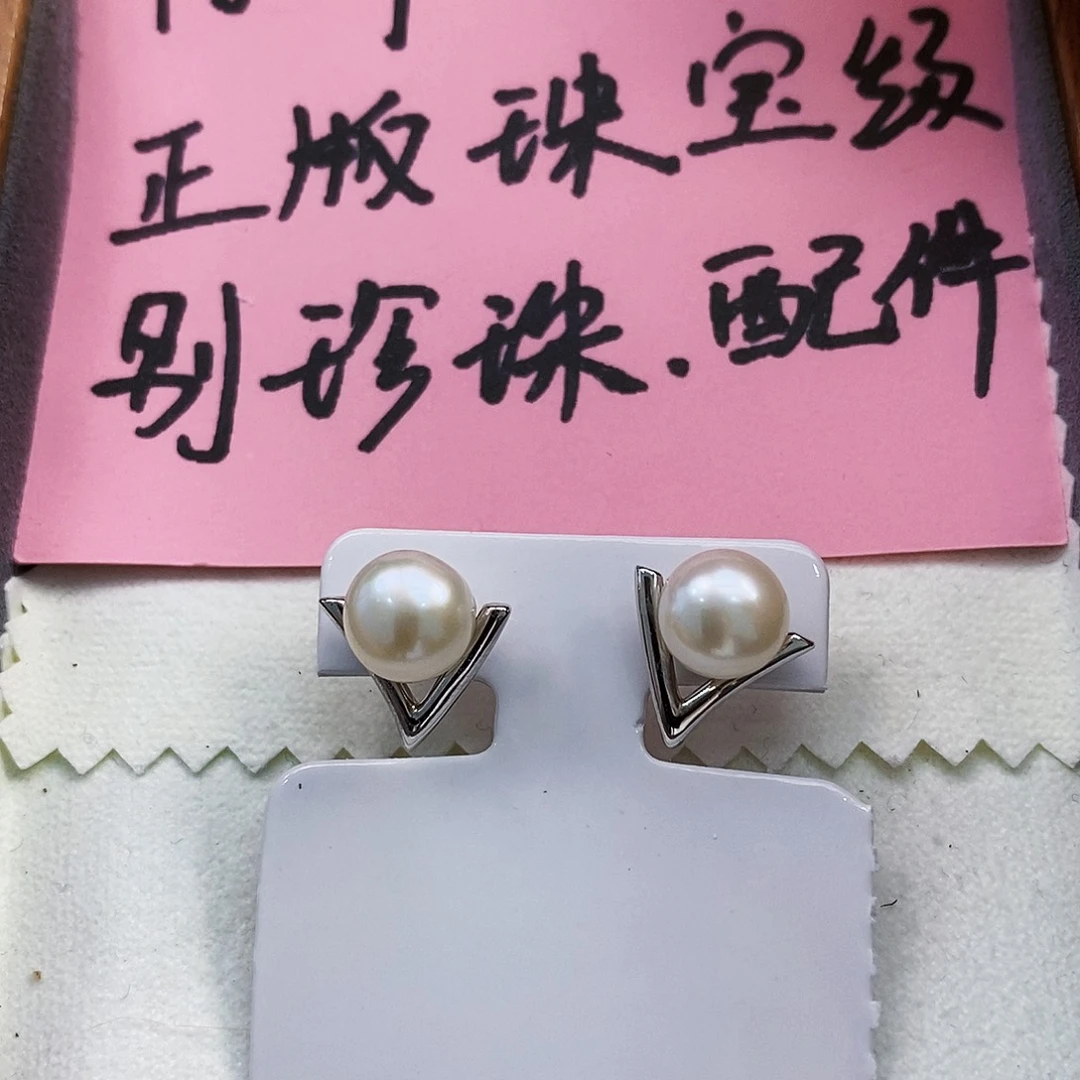 正版珠宝级
别珍珠.配件